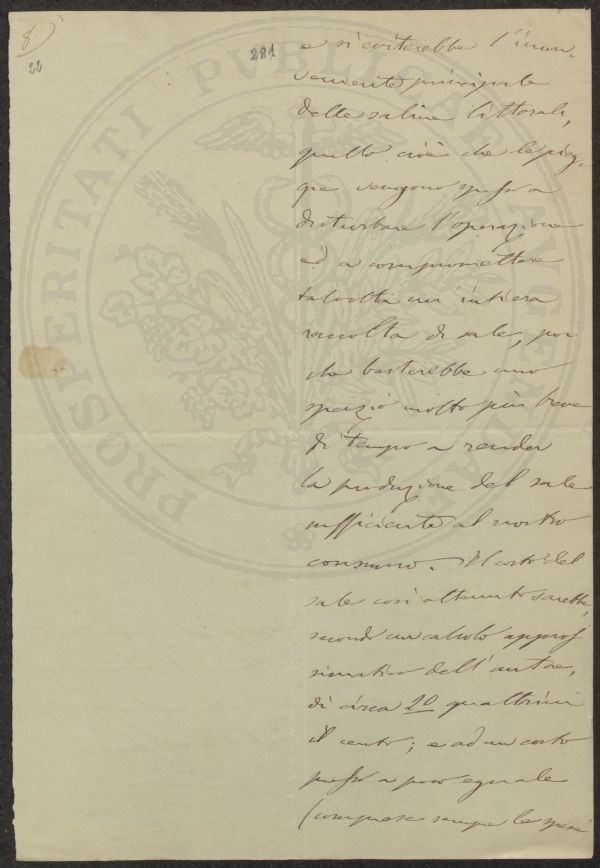 8)
22
281
PROSPERITATI PVBLICAE AVGENDAE
e si eviterebbe l'incon-
veniente principale
delle saline littorali,
quello cioè che le piog-
gie vengono spesso a
disturbare l'operazione
ed a compromettere
talvolta un'intiera
raccolta di sale, poi
chè basterebbe uno
spazio molto più breve
di tempo a render
la produzione del sale
sufficiente al nostro
consumo. Il costo del
sale così ottenuto sarebbe,
secondo un calcolo appros
simativo dell'autore,
di circa 20 quattrini
il cento; e ad un costo
presso a poco eguale
(comprese sempre le spese